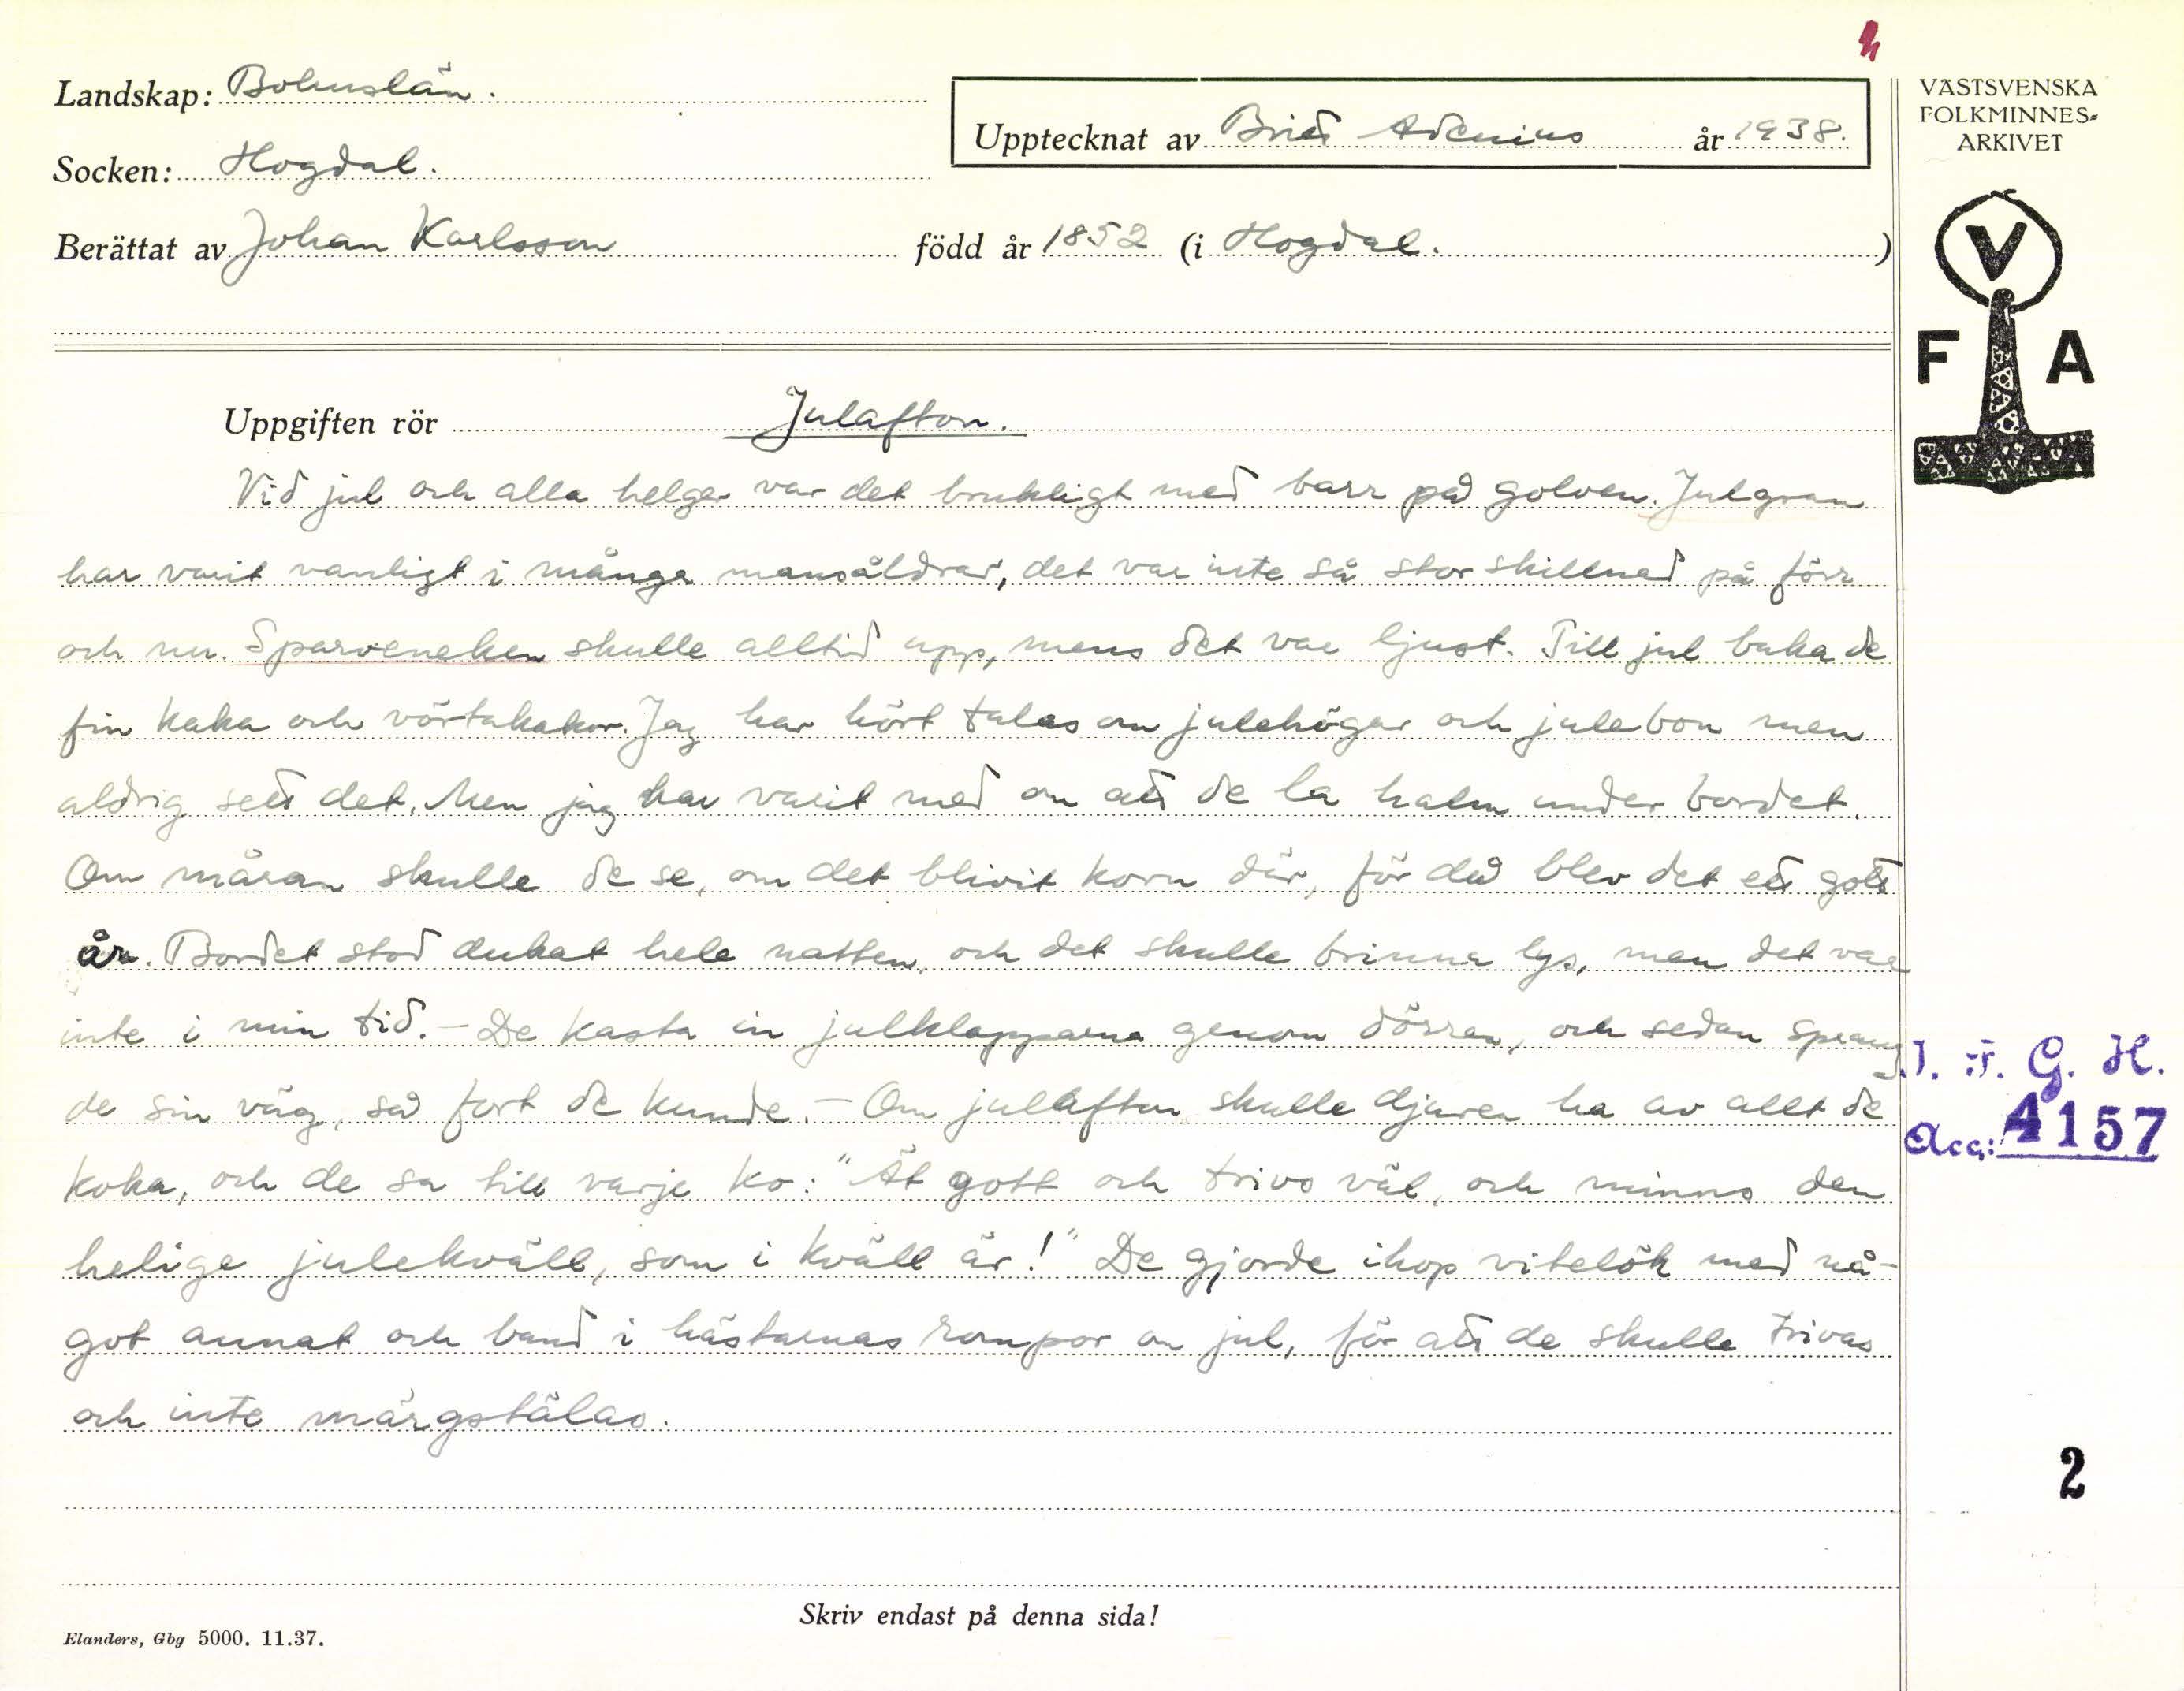 Landskap: Bohuslän.
Socken: Hogdal.
Upptecknat av Britt Adenius år 1938.
Berättat av Johan Karlsson född år 1852 (i Hogdal.)
VÄSTSVENSKA
FOLKMINNES-
ARKIVET
V
F A
Uppgiften rör Julafton.
Vid jul och alla helger var det brukligt med barr på golven. Julgran
har varit vanligt i många mansåldrar, det var inte så stor skillnad på förr
och nu. Sparveneken skulle alltid upp, mens det var ljust. Till jul baka de
fin kaka och vörtakakor. Jag har hört talas om julehögar och julebon men
aldrig sett det. Men jag har varit med om att de la halm under bordet.
Om måran skulle de se, om det blivit korn där, för då blev det ett gott
år. Bordet stod dukat hele natten, och det skulle brinna lys, men det var
inte i min tid. - De kasta in julklapparna genom dörren, och sedan sprang
de sin väg, så fort de kunde. - Om julafton skulle djuren ha av allt de
koka, och de sa till varje ko: "Ät gott och trivs väl, och minns den
helige julekväll, som i kväll är!" De gjorde ihop vitelök med nå-
got annat och band i hästarnas rompor om jul, för att de skulle trivas
och inte märgstälas.
I. F. G. H.
Acc: 4157
2
Skriv endast på denna sida!
Elanders, Gbg 5000. 11.37.